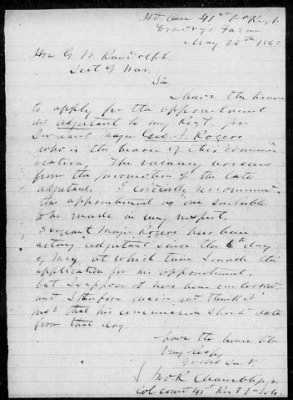 Hd Qrs 41st Va Regt
Drewrys Farm
May 26th 1862
Hon G. W Randolph
Sect of War
Sir
I have the honor
to apply for the appointment
as adjutant to my Regt. for
Sergeant Major Geo. J. Rogers
who is the bearer of this communi-
cation. The vacancy occurs
from the promotion of the late
adjutant. I cordially recommend
the appointment as one suitable
to be made in every respect.
Sergeant Major Rogers has been
acting adjutant since the 6th day
of May, at which time I made the
application for his appointment,
but it appears to have been overlooked
and I therefore desire and think it
just that his commission should date
from that day.
I have the honor to be
Very resply
Your obt Svt
Jno R Chambliss Jr
Col Comdt 41st Regt Va Vols